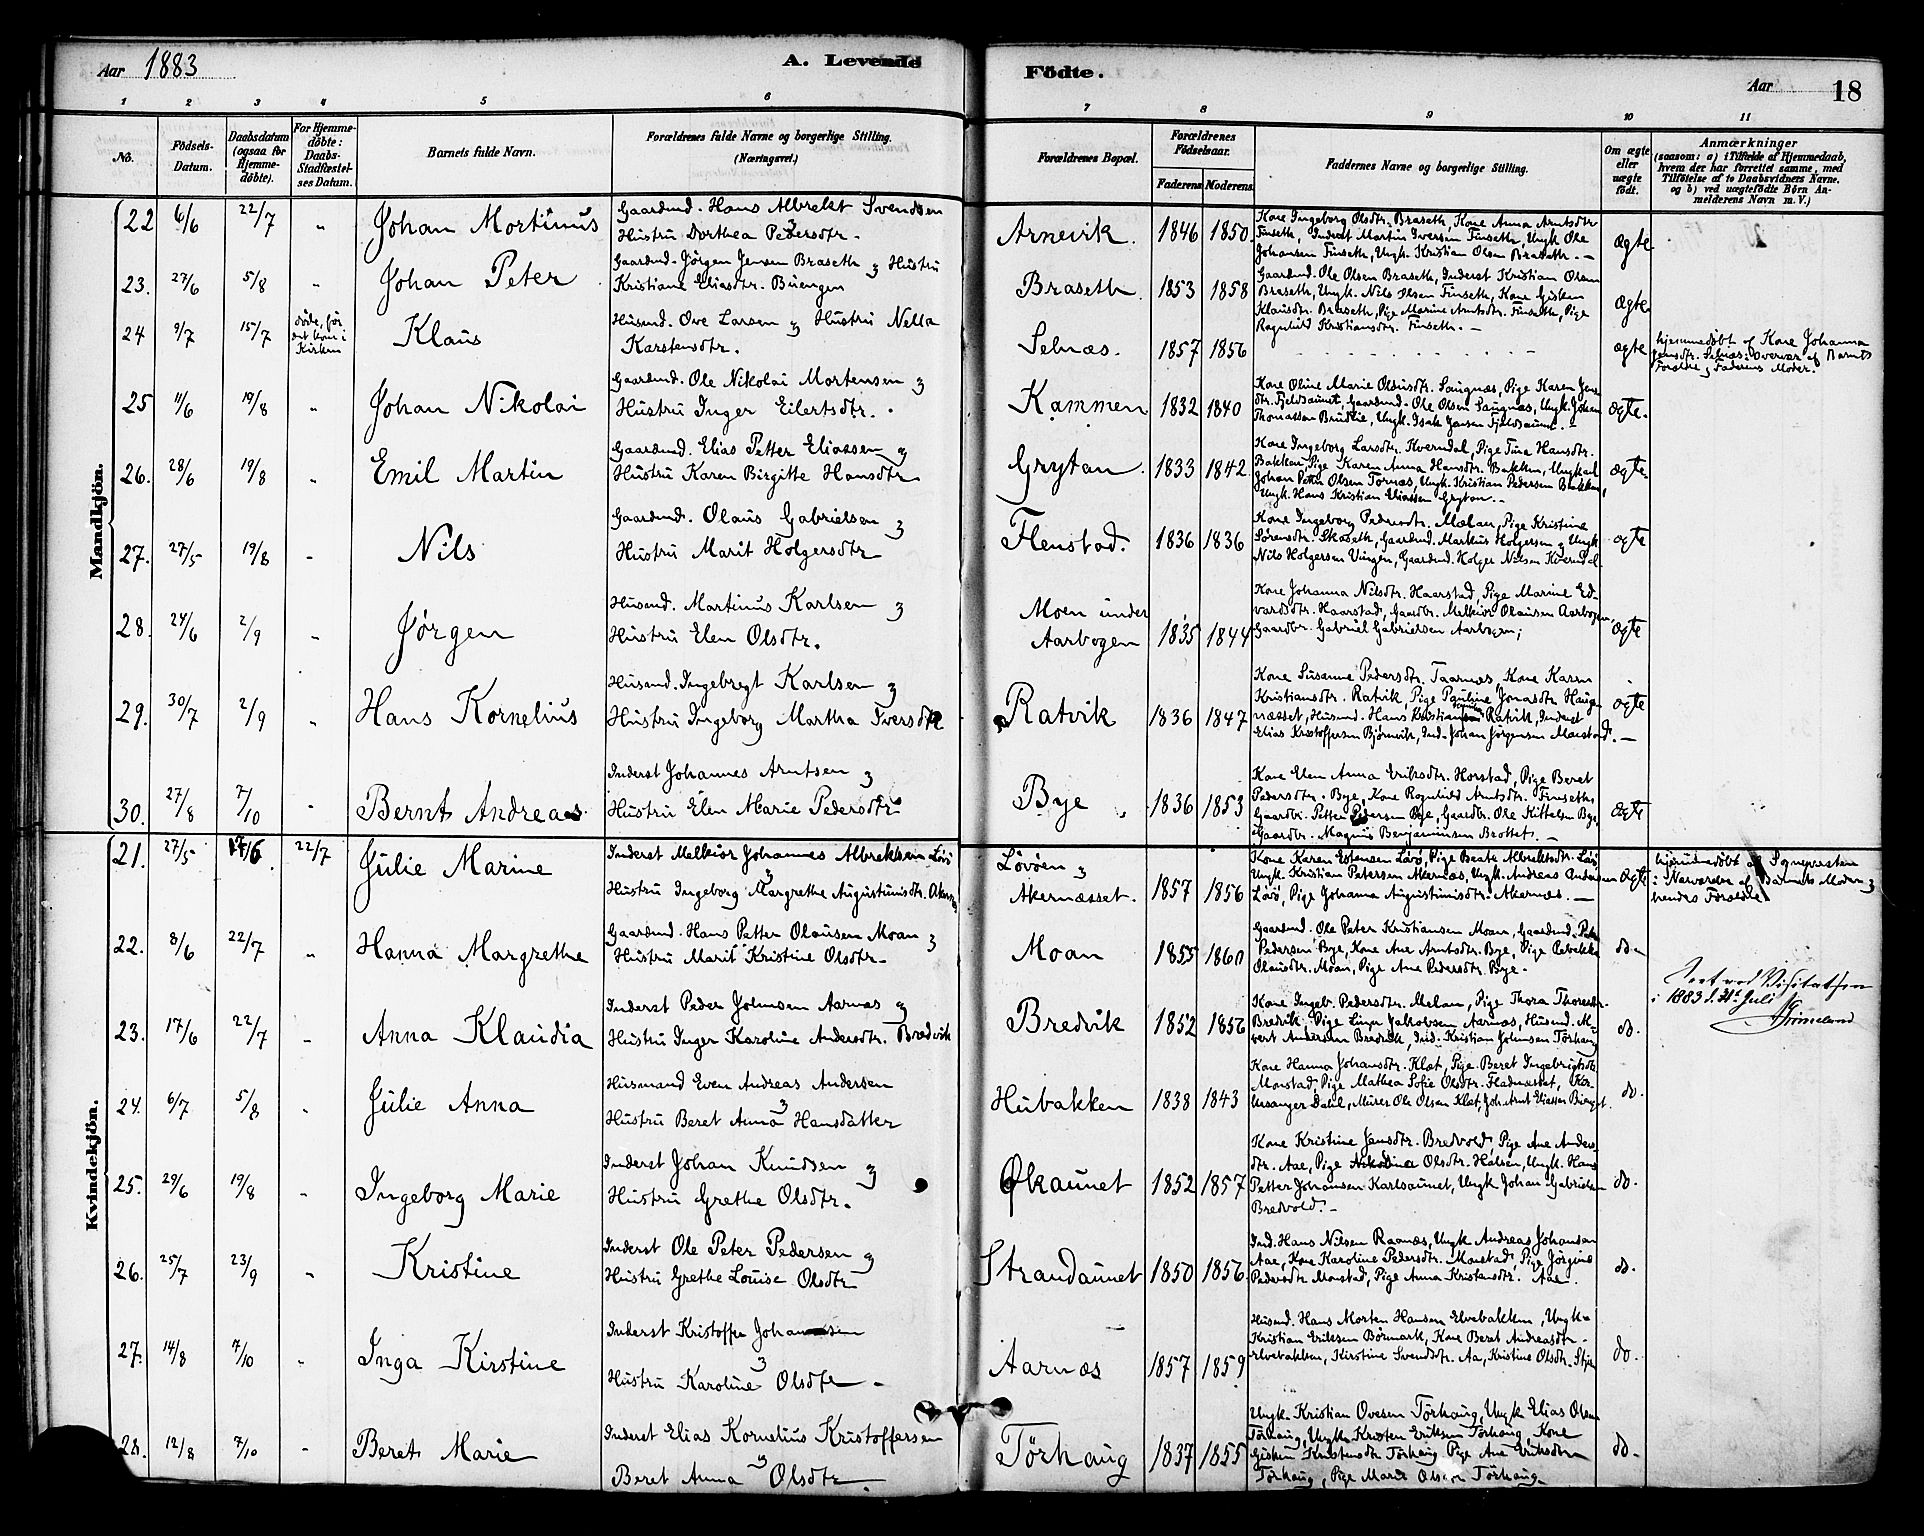 Aar 1883
A. Levende
Födte.
Aar
18
1 2 3 4 5 6 7 8 9 10 11
No.
Födsels-
Datum.
Daabsdatum
(ogsaa for
Hjemme-
döbte).
For Hjemme-
döbte:
Daabs-
Stadfæstel-
ses Datum.
Barnets fulde Navn.
Forældrenes fulde Navne og borgerlige Stilling.
(Næringsvei.)
Forældrenes Bopæl.
Forældrenes
Födselsaar.
Faderens Moderens
Faddernes Navne og borgerlige Stilling.
Om ægte
eller
uægte
født.
Anmærkninger
(saasom: a) i Tilfælde af Hjemmedaab,
hvem der har forrettet samme, med
Tilföielse af to Daabsvidners Navne.
og b) ved uægtefödte Börn An-
melderens Navn m. V.)
Mandkjön.
22 6/6 22/7 " Johan Mortinus
Gaardmd. Hans Albrekt Svendsen
Hustru Dorthea Pedersdtr.
Arnevik. 1846 1850
Kone Ingeborg Olsdtr. Braseth, Kone Anna Arntsdtr.
Finseth, Inderst Martin Iversen Finseth, Ungk. Ole
Johansen Finseth, Ungk. Kristian Olsen Braseth. —
ægte
23. 27/6 5/8 " Johan Peter
Gaardmd. Jörgen Jensen Braseth og Hustru
Kristiane Eliasdtr. Buengen
Braseth 1853 1858
Gaardmd. Ole Olsen Braseth, Inderst Kristian Olsen
Braseth, Ungk. Nils Olsen Finseth, Kone Gisken
Klausdtr. Braseth, Pige Marine Arntsdtr. Finseth, Pige
Ragnhild Kristiansdtr. Finseth. —
ægte
24 9/7 15/7 döde, før
det kom i
Kirken
Klaus
Husmd. Ove Larsen og Hustru Nella
Karstensdtr.
Selnæs. 1857 1856
ægte
hjemmedöbt af Kone Johanna
Jensdtr. Selnæs. Overvær af Barnets
Forældre og Faderens Moder.
25 11/6 19/8 " Johan Nikolai
Gaardmd. Ole Nikolai Mortensen og
Hustru Inger Eilertsdtr.
Kammen 1832 1840
Kone Oline Marie Olausdtr. Saugnæs, Pige Karen Jens
dtr. Fjeldsaunet, Gaardmd. Ole Olsen Saugnæs, Ungk. Johan
Thomassen Brudlie, Ungk. Isak Jensen Fjeldsaunet. —
ægte.
26. 28/6 19/8 " Emil Martin
Gaardmd. Elias Petter Eliassen og
Hustru Karen Birgitte Hansdtr
Grytan. 1833 1842
Kone Ingeborg Larsdtr. Kverndal, Pige Tina Hansdtr.
Bakken, Pige Karen Anna Hansdtr. Bakken, Ungkarl
Johan Peter Olsen Tornæs, Ungk. Kristian Pedersen Bakken,
Ungk. Hans Kristian Eliassen Grytan. —
ægte
27. 27/5 19/8 " Nils
Gaardmd. Olaus Gabrielsen og
Hustru Marit Holgersdtr
Flenstad. 1836 1836
Kone Ingeborg Pedersdtr. Mælan, Pige Kristine
Sørensdtr. Skoseth, Gaardmd. Markus Holgersen og Ungk
Nils Holgersen Vingen, Gaardmd. Holger Nilsen Kverndal.
ægte
28. 24/6 2/9 " Jörgen
Husmd. Martinus Karlsen og
Hustru Elen Olsdtr.
Moen under
Aarbogen 1835 1844
Kone Johanna Nilsdtr. Haarstad, Pige Marine Ed-
vardsdtr. Haarstad, Gaardbr. Melkior Olausen Aarbogen,
Gaardbr. Gabriel Gabrielsen Aarbogen;
ægte
29. 30/7 2/9 " Hans Kornelius
Husmd. Ingebregt Karlsen og
Hustru Ingeborg Martha Iversdtr
Ratvik 1836 1847
Kone Susanne Pedersdtr. Taarnæs, Kone Karen
Kristiansdtr. Ratvik, Pige Pauline Jonasdtr Haugen
næsset, Husmd. Hans Kristiansen Ratvik, Inderst
Elias Kristoffersen Bjørnvik, Ind. Johan Jörgensen Morstad. —
ægte
30. 27/8 7/10 " Bernt Andreas
Inderst Johannes Arntsen og
Hustru Elen Marie Pedersdtr
Bye 1836 1853
Kone Elen Anna Eriksdtr. Horstad, Pige Beret
Pedersdtr. Bye, Kone Ragnhild Arntsdtr. Finseth,
Gaardbr. Petter Pedersen Bye, Gaardbr. Ole Kittelsen Bye,
Gaardbr. Magnus Benjaminsen Brottet. —
ægte
Kvindekjön.
21. 27/5 17/6 22/7 Julie Marine
Inderst Melkior Johannes Albrektsen Lövö
og
Hustru Ingeborg Margrethe Augustinusdtr. Akernæs
Lövöen og
Akernæsset. 1857 1856
Kone Karen Estensen Lövö, Pige Beate Albrektsdtr. Lövö
Ungk. Kristian Petersen Akernæs, Ungk. Andreas Andersen
Lövö, Pige Johanna Augustinusdtr. Akernæs. —
ægte
hjemmedöbt af Sognepræsten
i Nærværelse af Barnets Moder og
hendes Forældre
22. 8/6 22/7 " Hanna Margrethe
Gaardmd. Hans Petter Olausen Moan og
Hustru Marit Kristine Olsdtr.
Moan 1855 1860
Gaardmd. Ole Peter Kristiansen Moan, Gaardmd. Peder
Pedersen Bye, Kone Ane Arntsdtr. Bye, Pige Rebekka
Olausdtr. Moan, Pige Ane Pedersdtr. Bye.
do.
Seet ved Visitatsen
i 1883 d. 31te Juli
Grimelund
23. 17/6 22/7 " Anna Klaudia
Inderst Peder Johnsen Aarnæs og
Hustru Inger Karoline Andersdtr. Bredvik
Bredvik 1852 1856
Kone Ingeb. Pedersdtr. Melan, Pige Thora Thoresdtr.
Bredvik, Pige Lina Jakobsen Aarnæs, Husmd. A-
vert Andersen Bredvik, Ind. Kristian Johnsen Törhaug
do.
24. 6/7 5/8 " Julie Anna
Husmand Even Andreas Andersen
og
Hustru Beret Anna Hansdatter
Hubakken 1838 1843
Kone Hanna Johansdtr. Klæt, Pige Beret Ingebrigtsdtr.
Morstad, Pige Mathea Sofie Olsdtr. Fladnæsset, Kir-
kesanger Dahl, Murer Ole Olsen Klæt, Joh. Arnt Eliassen
do.
25. 29/6 19/8 " Ingeborg Marie
Inderst Johan Knudsen og
Hustru Grethe Olsdtr.
Økaunet 1852 1857
Kone Kristine Jansdtr. Bredvold, Pige Ane Anders-
dtr. Aae, Pige Nikoline Olsdtr. Halsen, Ungk. Hans
Petter Johansen Karlsaunet, Ungk Johan Gabrielsen
Bredvold. —
do.
26. 25/7 23/9 " Kristine
Inderst Ole Peter Pedersen og
Hustru Grethe Louise Olsdtr
Strandaunet 1850 1856
Ind. Hans Nilsen Raanæs, Ungk Andreas Johansen
Aae, Kone Karoline Pedersdtr. Morstad, Pige Jörgine
Pedersdtr Morstad, Pige Anna Kristensdtr. Aae.
do.
27. 14/8 7/10 " Inga Kirstine
Inderst Kristoffer Johansen
og
Hustru Karoline Olsdtr
Aarnæs 1857 1859
Husmd. Hans Morten Hansen Elvebakken, Ungk.
Kristian Eriksen Börmark, Kone Beret Andreasdtr.
Elvebakken, Kirstine Svendsdtr. Aa, Kristine Olsdtr.
do.
28. 12/8 7/10 " Beret Marie
Inderst Elias Kornelius Kristoffersen
og
Beret Anna Olsdtr.
Törhaug 1837 1855
Ungk. Kristian Ovesen Törhaug, Ungk Elias Olsen
Törhaug, Ungk. Kristen Eriksen Törhaug, Kone
Gisken Kristensdtr Törhaug Pige Ane Eriksdtr
Törhaug, Pige Marie Olsen Törhaug
do.